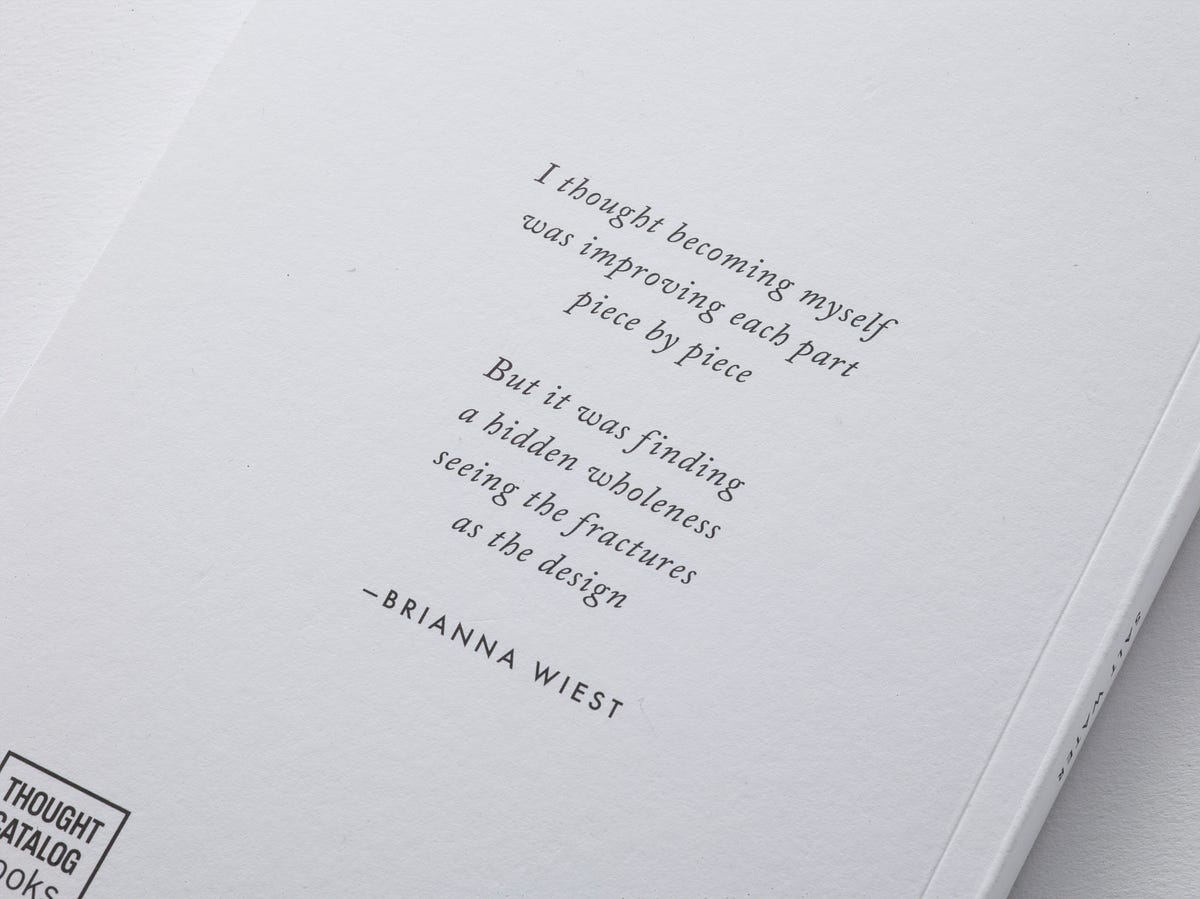 I thought becoming myself
was improving each part
piece by piece
But it was finding
a hidden wholeness
seeing the fractures
as the design
–BRIANNA WIEST
THOUGHT
CATALOG
ooks
SALT WATER